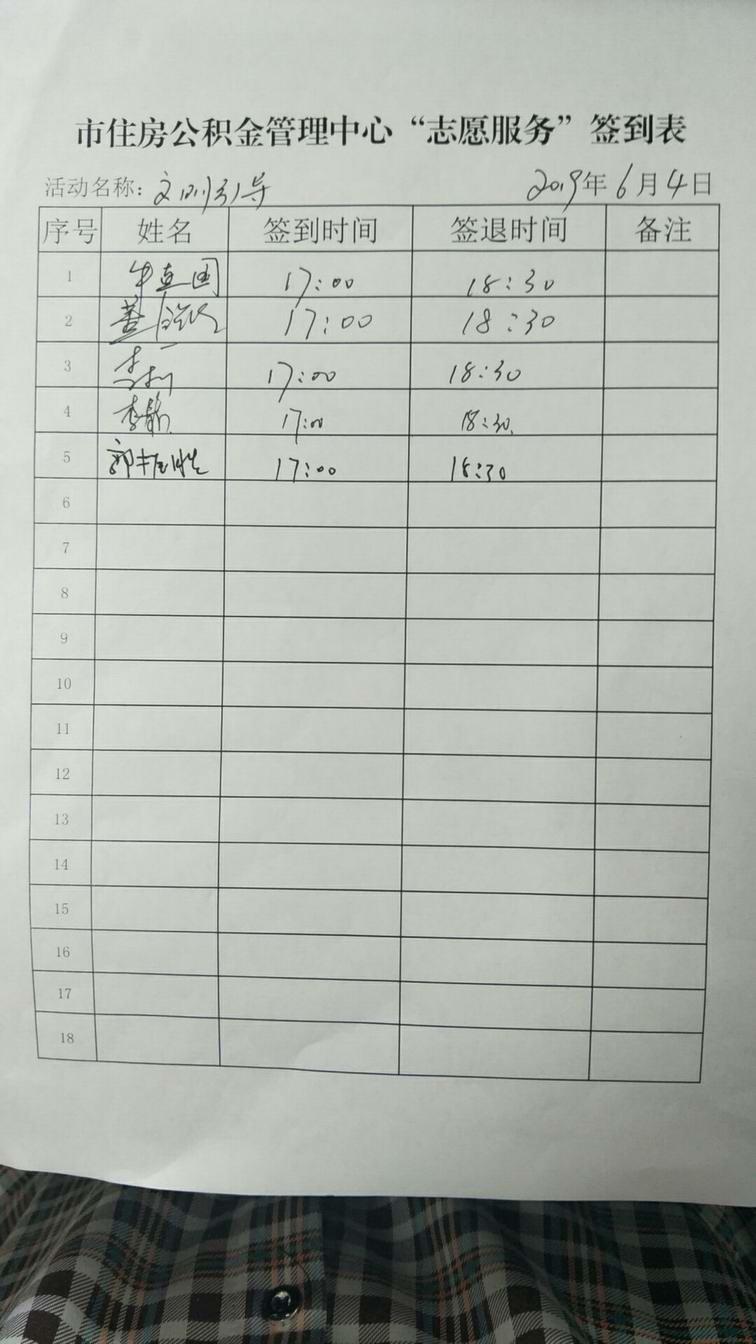 市住房公积金管理中心“志愿服务”签到表
活动名称：文明引导 2019年6月4日
序号 姓名 签到时间 签退时间 备注
1 17:00 18:30
2 17:00 18:30
3 17:00 18:30
4 李静 17:00 18:30
5 郭 17:00 18:30
6
7
8
9
10
11
12
13
14
15
16
17
18